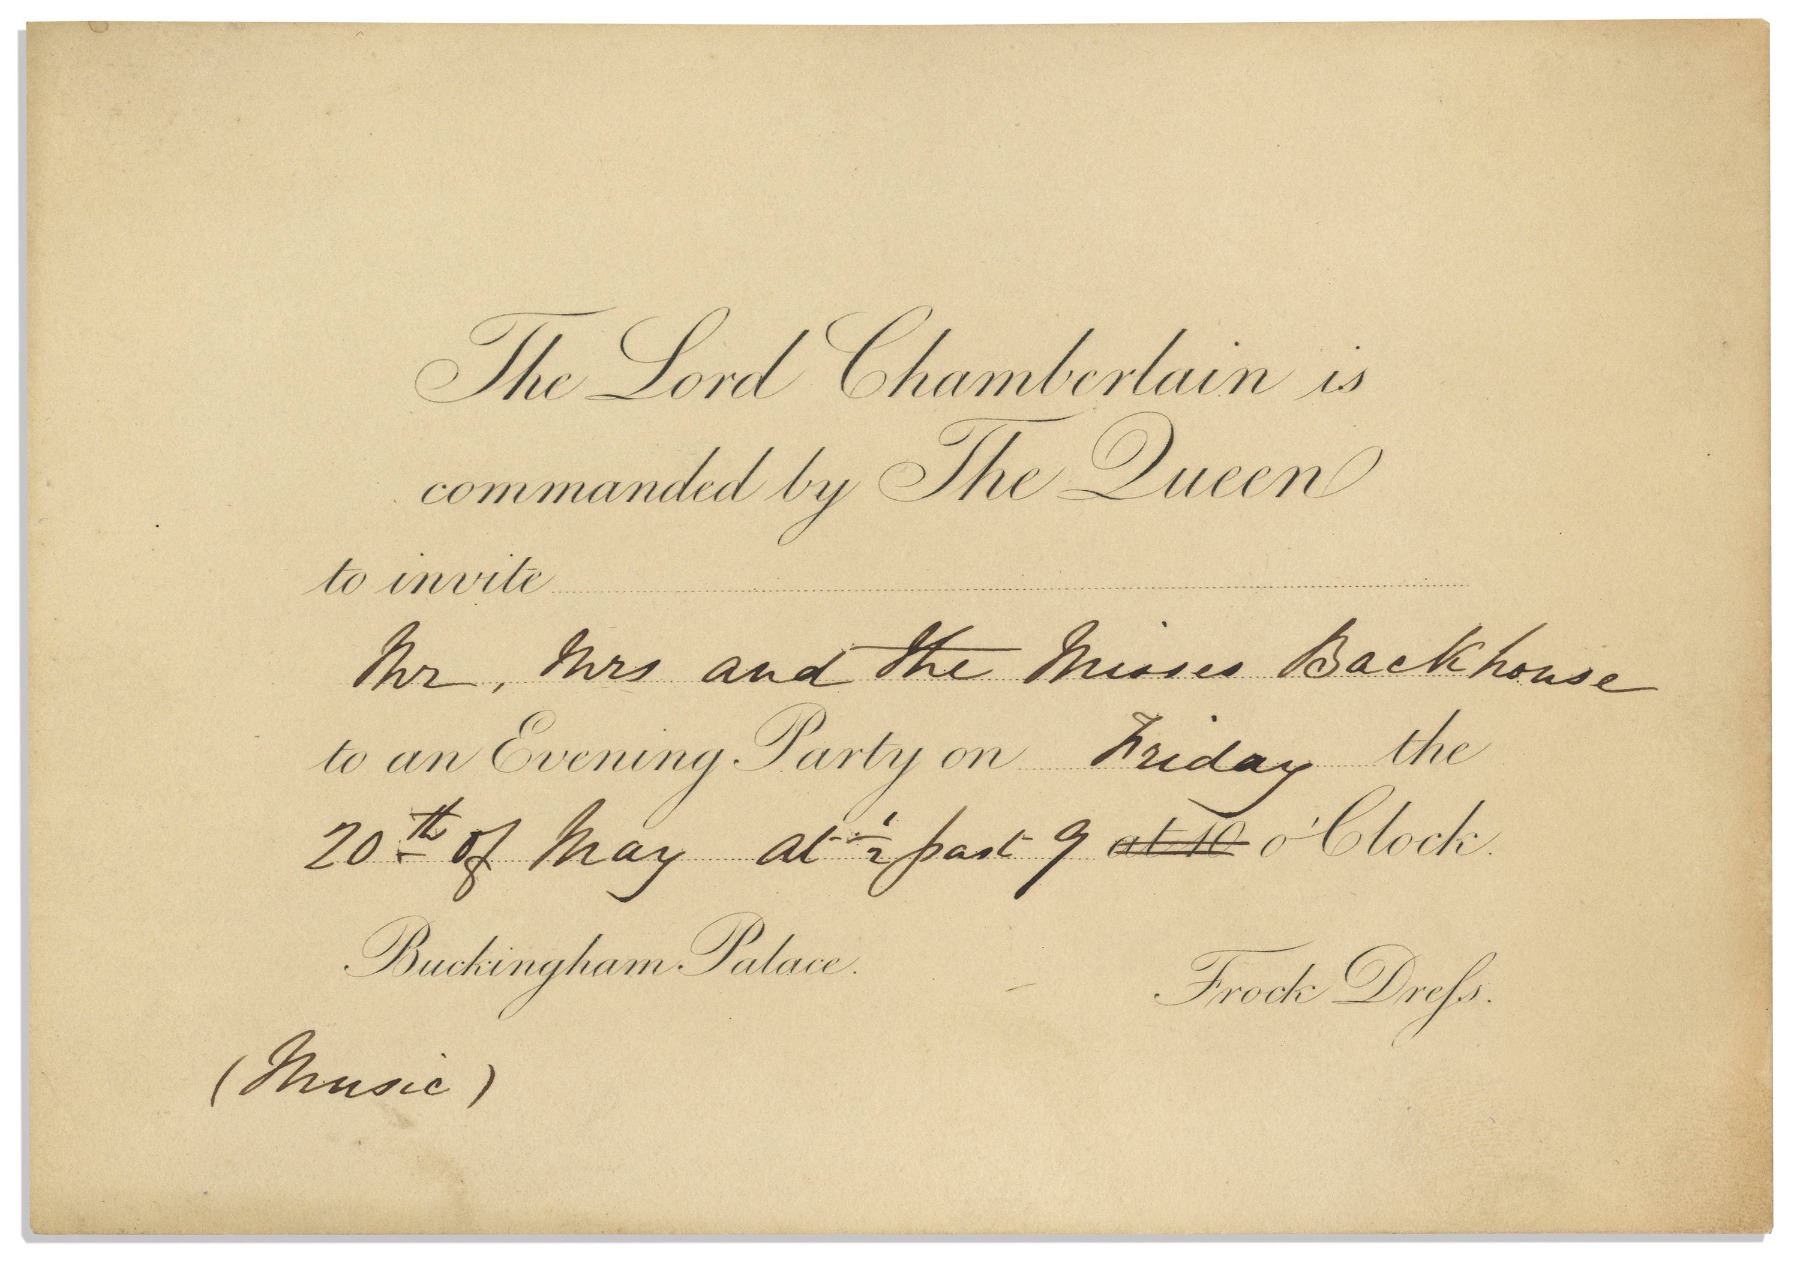 The Lord Chamberlain is
commanded by The Queen
to invite
Mr, Mrs and the Misses Backhouse
to an Evening Party on Friday the
20th of May at ½ past 9 at 10 o'Clock.
Buckingham Palace.
Frock Dreſs.
(Music)